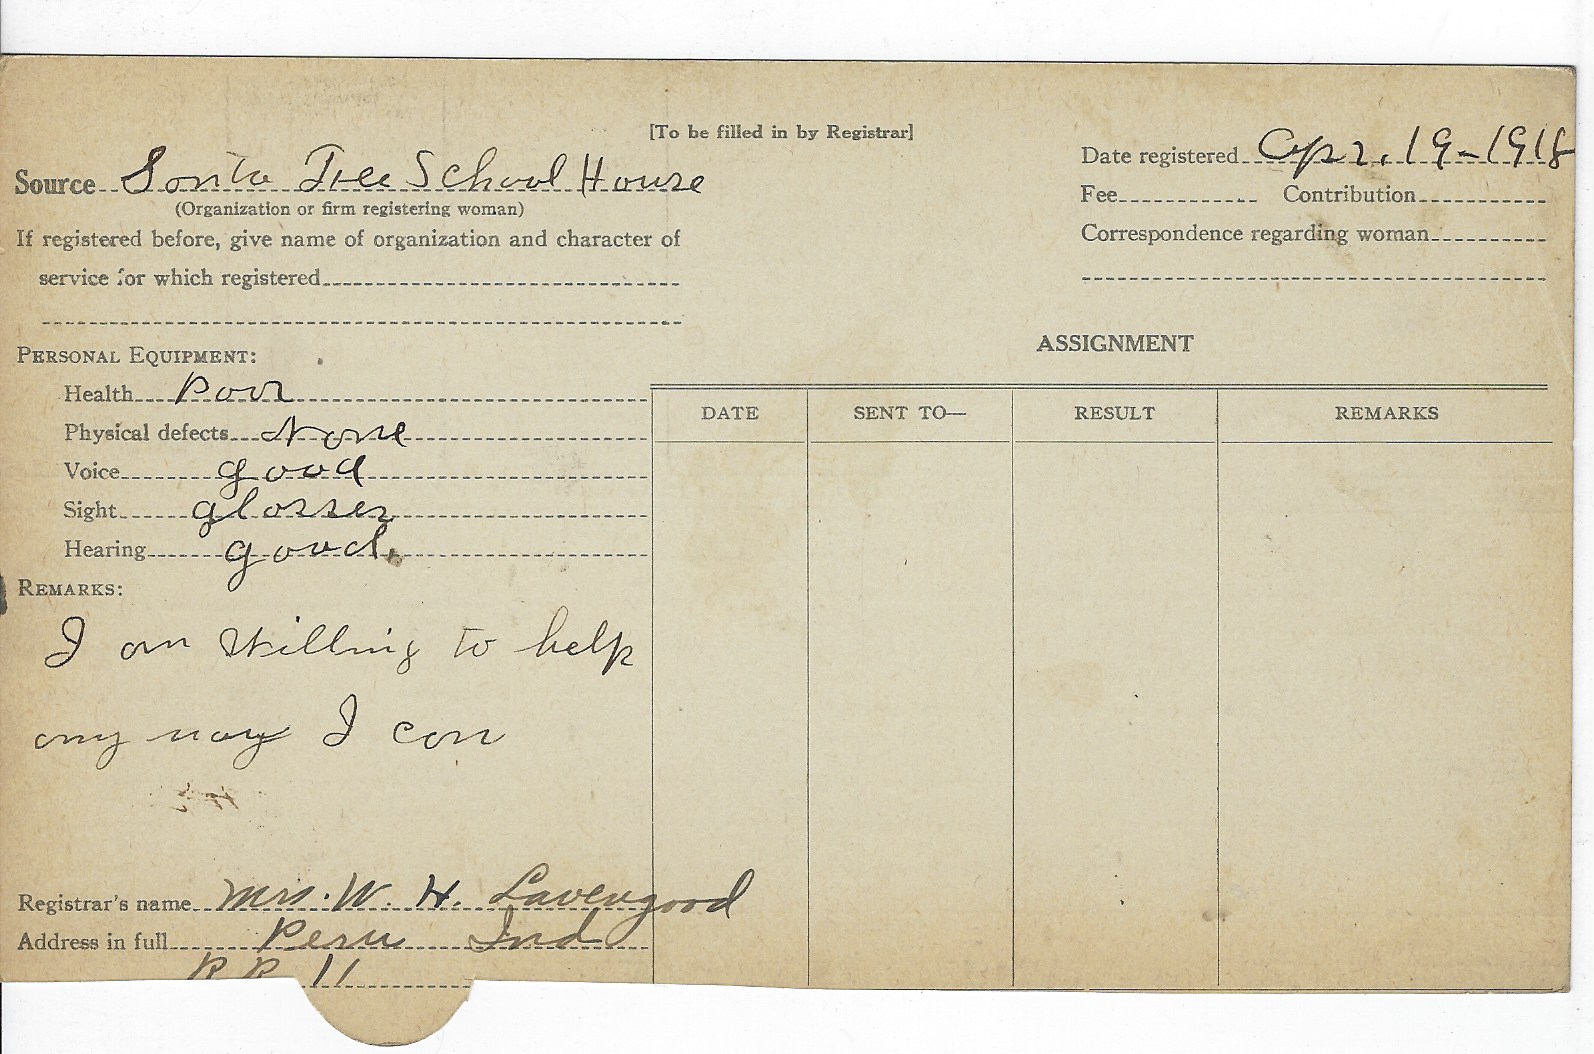 [To be filled in by Registrar]
Source Santa Fee School House
(Organization or firm registering woman)
If registered before, give name of organization and character of
service for which registered
Date registered Apr. 19-1918
Fee Contribution
Correspondence regarding woman
PERSONAL EQUIPMENT:
Health Poor
Physical defects None
Voice good
Sight glasses
Hearing good.
REMARKS:
I am willing to help
any way I can
Registrar's name Mrs. W. H. Lavengood
Address in full Peru Ind
R R 11
ASSIGNMENT
DATE SENT TO— RESULT REMARKS